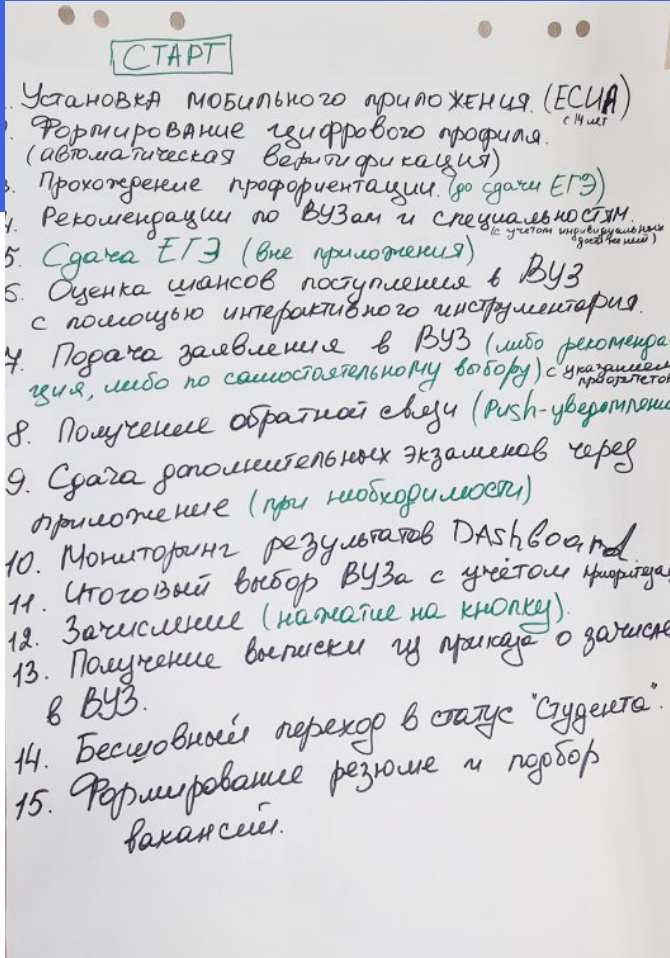 СТАРТ
. Установка мобильного приложения. (ЕСИА)
с 14 лет
. Формирование цифрового профиля.
(автоматическая верификация)
3. Прохождение профориентации. (до сдачи ЕГЭ)
4. Рекомендации по ВУЗам и специальностям.
(с учётом индивидуальных
достижений)
5. Сдача ЕГЭ (вне приложения)
6. Оценка шансов поступления в ВУЗ
с помощью интерактивного инструментария.
7. Подача заявления в ВУЗ (либо рекоменда-
ция, либо по самостоятельному выбору) с указанием
приоритетов
8. Получение обратной связи (Push-уведомлени
9. Сдача дополнительных экзаменов через
приложение (при необходимости)
10. Мониторинг результатов DAshboard.
11. Итоговый выбор ВУЗа с учётом приоритеза
12. Зачисление (нажатие на кнопку).
13. Получение выписки из приказа о зачисле
в ВУЗ.
14. Бесшовный переход в статус "Студента".
15. Формирование резюме и подбор
вакансий.